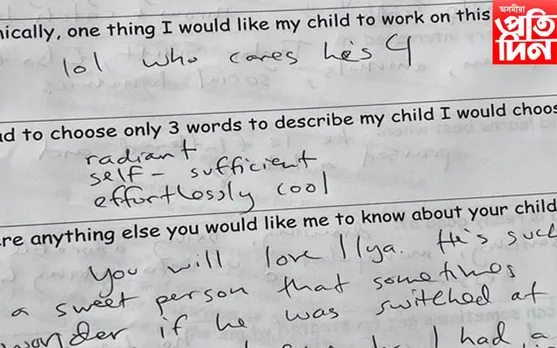 nically, one thing I would like my child to work on this
lol who cares he's 4
অসমীয়া
প্রতি
দিন
ad to choose only 3 words to describe my child I would choos
radiant
self-sufficient
effortlessly cool
re anything else you would like me to know about your child
You will love Ilya. He's such
a sweet person that sometimes
wonder if he was switched at
I had a